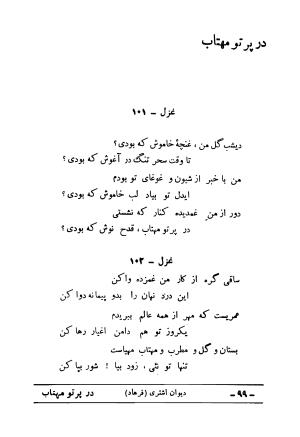 در پرتو مهتاب
غزل - ۱۰۱
دیشب گل من ، غنچهٔ خاموش که بودی؟
تا وقت سحر تنگ در آغوش که بودی؟
من با خبر از شیون و غوغای تو بودم
ایدل تو بیاد لب خاموش که بودی؟
دور از من غمدیده کنار که نشستی
در پرتو مهتاب، قدح نوش که بودی؟
غزل - ۱۰۲
ساقی گره از کار من غمزده واکن
این درد نهان را بدو پیمانه دوا کن
عمریست که مهر از همه عالم ببریدم
یکروز تو هم دامن اغیار رها کن
بستان و گل و مطرب و مهتاب مهیاست
تنها تو نئی، زود بیا ! شور بپا کن
در پرتو مهتاب
دیوان اشتری (فرهاد)
- ۹۹ -